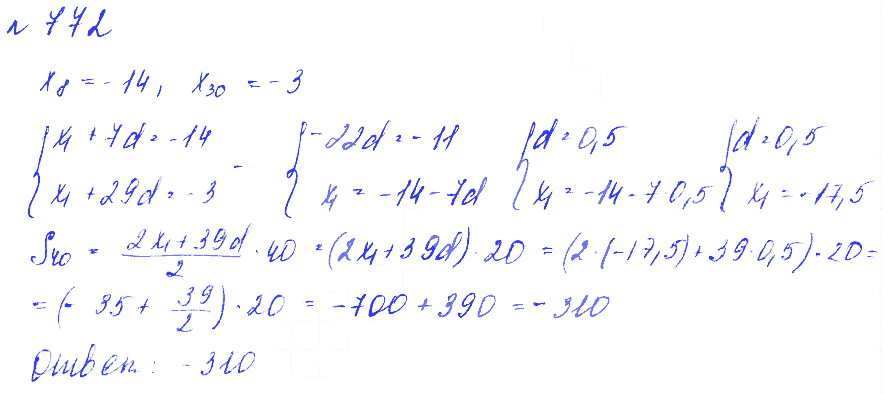 № 772
x₈ = -14, x₃₀ = -3
{x₁ + 7d = -14 {-22d = -11 {d = 0,5 {d = 0,5
{x₁ + 29d = -3 - {x₁ = -14 - 7d {x₁ = -14 - 7·0,5 {x₁ = -17,5
S₄₀ = (2x₁ + 39d)/2 · 40 = (2x₁ + 39d) · 20 = (2·(-17,5) + 39·0,5) · 20 =
= (- 35 + 39/2) · 20 = -700 + 390 = -310
Ответ: -310